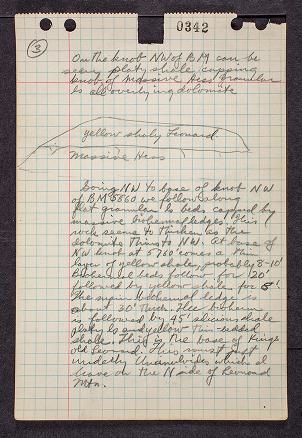 0342
3
On the knob NW of BM can be
seen platy shale capping
knob of Massive Hess granular
ls all overlying dolomite
yellow shaly Leonard
Massive Hess
Going NW to base of knob NW
of BM 5860 we follow along
flat granular ls beds capped by
massive biohermal ledges. This
rock seems to thicken as the
dolomite thins to NW. At base of
NW knob at 5760 comes a thin
layer of yellow shale, probably 8-10'
Biohermal beds follow for 120'
followed by yellow shale for 8'
The upper biohermal ledge is
about 30' thick. The bioherm
is followed by 45' silicious shale
platy ls and yellow thin-bedded
shale. This is the base of Kings
old Leonard. This must just
underlie
leave on the N side of Leonard
Mtn.